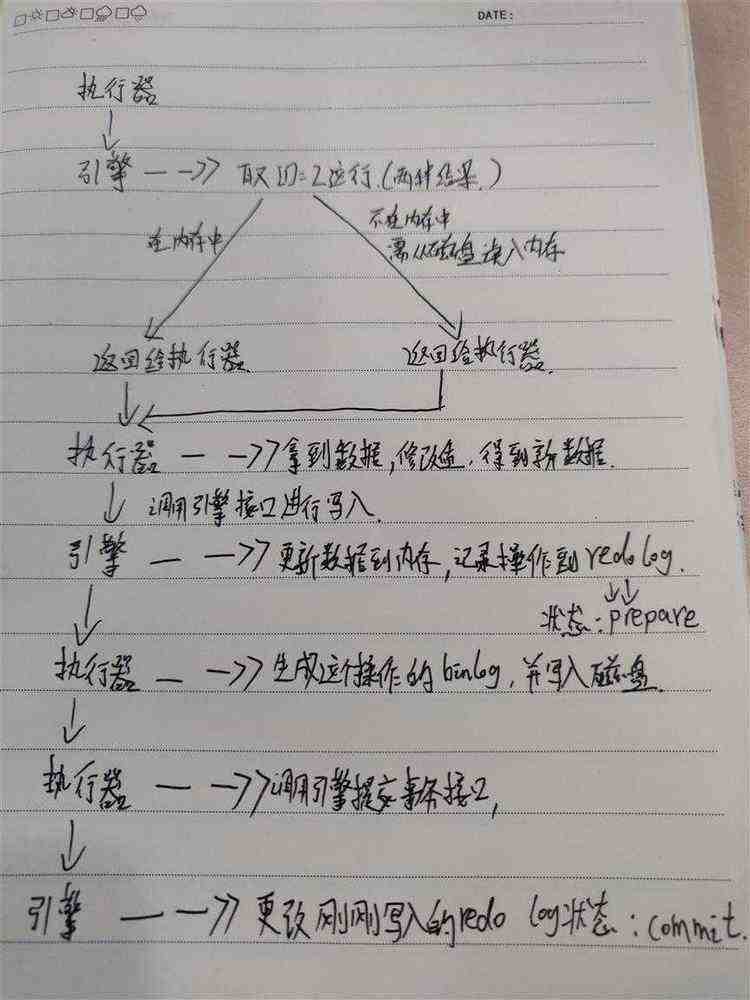 DATE:
执行器
引擎 取ID=2这行.(两种结果.)
在内存中
不在内存中
需从磁盘读入内存
返回给执行器
返回给执行器.
执行器 拿到数据,修改值,得到新数据.
调用引擎接口进行写入.
引擎 更新数据到内存,记录操作到redo log.
状态:prepare
执行器 生成这个操作的binlog,并写入磁盘.
执行器 调用引擎提交事务接口,
引擎 更改刚刚写入的redo log状态:commit.